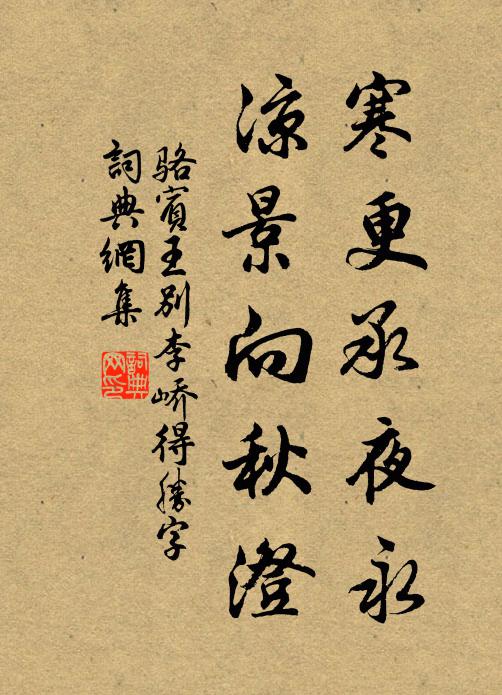 寒更承夜永
凉景向秋澄
駱賓王別李嶠得勝字
詞典網集
詞典
网印